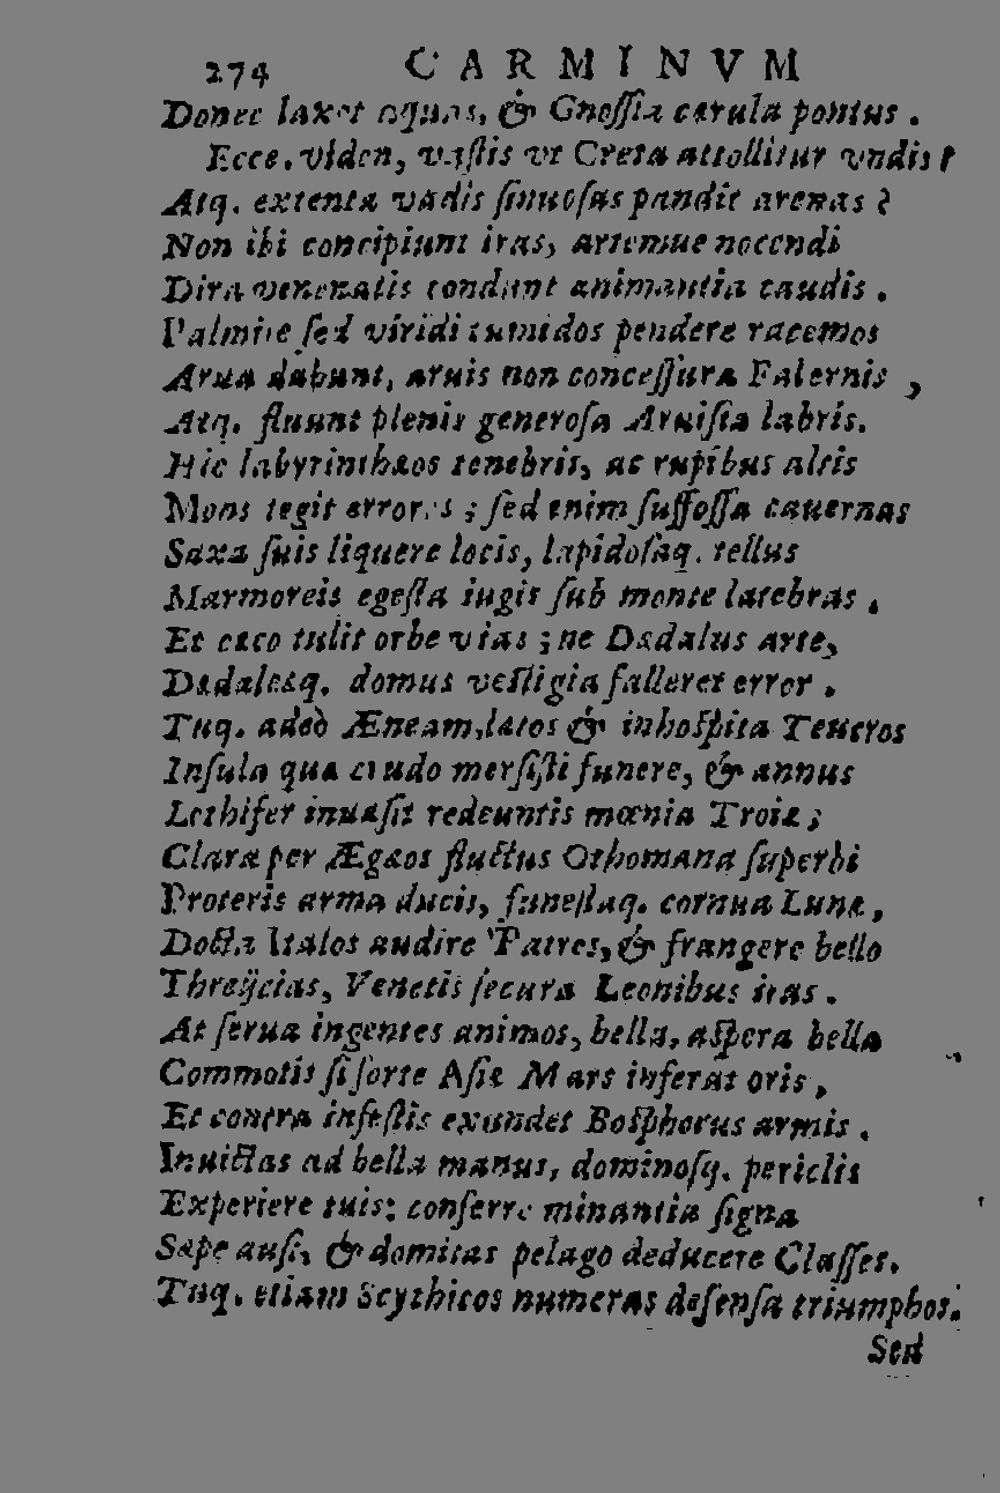 274 CARMINVM
Donec laxet aquas, & Gnoſſia cærula pontus.
Ecce. viden, vaſtis vt Creta attollitur vndis?
Atq. extenta vadis ſinuoſas pandit arenas?
Non ibi concipiunt iras, artemue nocendi
Dira venenatis condunt animantia caudis.
Palmite ſed viridi tumidos pendere racemos
Arua dabunt, aruis non conceſſura Falernis,
Atq. fluunt plenis generoſa Aruiſia labris.
Hic labyrinthæos tenebris, ac rupibus altis
Mons tegit errores; ſed enim ſuffoſſa cauernas
Saxa ſuis liquere locis, lapidoſaq. tellus
Marmoreis egeſta iugis ſub monte latebras.
Et cæco tulit orbe vias; ne Dædalus arte,
Dædaleæq. domus veſtigia falleret error.
Tuq. adeò Æneam, latos & inhoſpita Teucros
Inſula quæ crudo merſiſti funere, & annus
Lethifer inuaſit redeuntis mœnia Troiæ;
Clara per Ægæos fluctus Othomana ſuperbi
Proteris arma ducis, funeſtaq. cornua Lunæ,
Docta Italos audire Patres, & frangere bello
Threijcias, Venetis ſecura Leonibus iras.
At ſerua ingentes animos, bella, aſpera bella
Commotis ſi forte Aſiæ Mars inferat oris,
Et contra infeſtis exundet Boſphorus armis.
Inuictas ad bella manus, dominoſq. periclis
Experiere tuis: conferre minantia ſigna
Sæpe auſi, & domitas pelago deducere Claſſes.
Tuq. etiam Scythicos numeras defenſa triumphos.
Sed